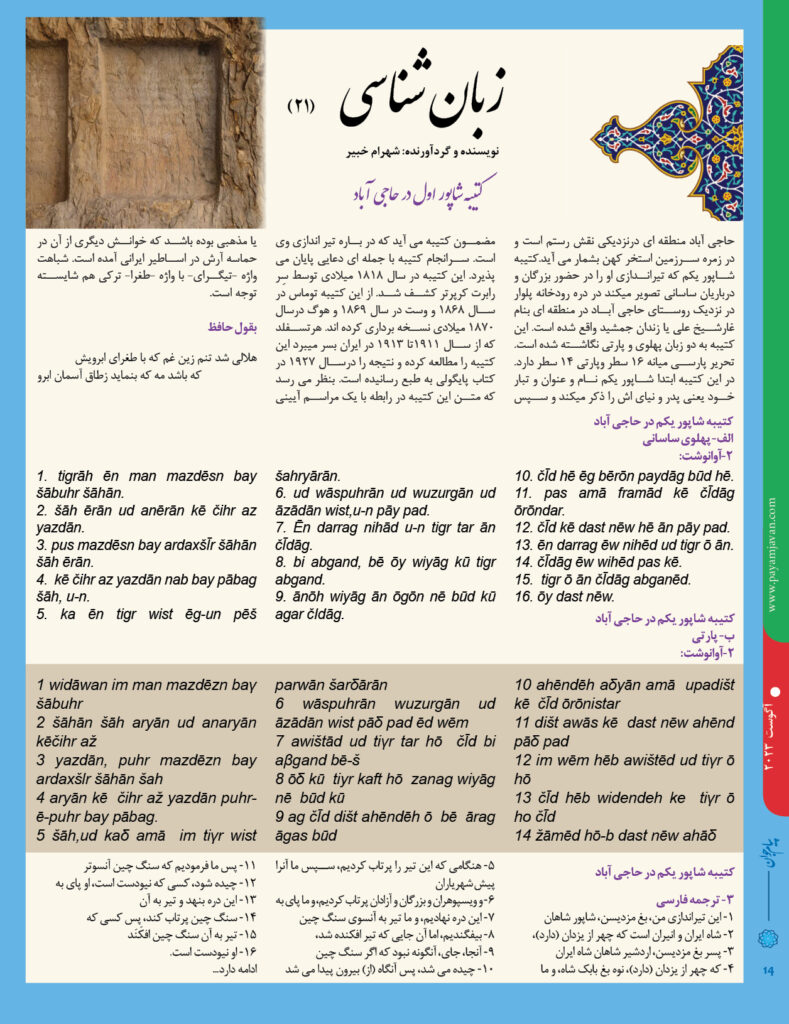 زبان شناسی
(۲۱)
نویسنده و گردآورنده: شهرام خبیر
کتیبه شاپور اول در حاجی آباد
حاجی آباد منطقه ای درنزدیکی نقش رستم است و
در زمره سرزمین استخر کهن بشمار می آید.کتیبه
شاپور یکم که تیراندازی او را در حضور بزرگان و
درباریان ساسانی تصویر میکند در دره رودخانه پلوار
در نزدیک روستای حاجی آباد در منطقه ای بنام
غارشیخ علی یا زندان جمشید واقع شده است. این
کتیبه به دو زبان پهلوی و پارتی نگاشته شده است.
تحریر پارسی میانه ۱۶ سطر وپارتی ۱۴ سطر دارد.
در این کتیبه ابتدا شاپور یکم نام و عنوان و تبار
خود یعنی پدر و نیای اش را ذکر میکند و سپس
مضمون کتیبه می آید که در باره تیر اندازی وی
است. سرانجام کتیبه با جمله ای دعایی پایان می
پذیرد. این کتیبه در سال ۱۸۱۸ میلادی توسط سِر
رابرت کرپرتر کشف شد. از این کتیبه توماس در
سال ۱۸۶۸ و وست در سال ۱۸۶۹ و هوگ درسال
۱۸۷۰ میلادی نسخه برداری کرده اند. هرتسفلد
که از سال ۱۹۱۱تا ۱۹۱۳ در ایران بسر میبرد این
کتیبه را مطالعه کرده و نتیجه را درسال ۱۹۲۷ در
کتاب پایگولی به طبع رسانیده است. بنظر می رسد
که متن این کتیبه در رابطه با یک مراسم آیینی
یا مذهبی بوده باشد که خوانش دیگری از آن در
حماسه آرش در اساطیر ایرانی آمده است. شباهت
واژه -تیگرای- با واژه -طغرا- ترکی هم شایسته
توجه است.
بقول حافظ
هلالی شد تنم زین غم که با طغرای ابرویش
که باشد مه که بنماید زطاق آسمان ابرو
کتیبه شاپور یکم در حاجی آباد
الف- پهلوی ساسانی
۲-آوانوشت:
1. tigrāh ēn man mazdēsn bay
šābuhr šāhān.
2. šāh ērān ud anērān kē čihr az
yazdān.
3. pus mazdēsn bay ardaxšĪr šāhān
šāh ērān.
4. kē čihr az yazdān nab bay pābag
šāh, u-n.
5. ka ēn tigr wist ēg-un pēš
šahryārān.
6. ud wāspuhrān ud wuzurgān ud
āzādān wist,u-n pāy pad.
7. Ēn darrag nihād u-n tigr tar ān
čĪdāg.
8. bi abgand, bē ōy wiyāg kū tigr
abgand.
9. ānōh wiyāg ān ōgōn nē būd kū
agar čIdāg.
10. čĪd hē ēg bērōn paydāg būd hē.
11. pas amā framād kē čĪdāg
ōrōndar.
12. čĪd kē dast nēw hē ān pāy pad.
13. ēn darrag ēw nihēd ud tigr ō ān.
14. čĪdāg ēw wihēd pas kē.
15. tigr ō ān čĪdāg abganēd.
16. ōy dast nēw.
کتیبه شاپور یکم در حاجی آباد
ب- پارتی
۲-آوانوشت:
1 widāwan im man mazdēzn baγ
šābuhr
2 šāhān šāh aryān ud anaryān
kēčihr až
3 yazdān, puhr mazdēzn bay
ardaxšIr šāhān šah
4 aryān kē čihr až yazdān puhr-
ē-puhr bay pābag.
5 šāh,ud kaδ amā im tiγr wist
parwān šarδārān
6 wāspuhrān wuzurgān ud
āzādān wist pāδ pad ēd wēm
7 awištād ud tiγr tar hō čĪd bi
aβgand bē-š
8 ōδ kū tiyr kaft hō zanag wiyāg
nē būd kū
9 ag čĪd dišt ahēndēh ō bē ārag
āgas būd
10 ahēndēh aδyān amā upadišt
kē čĪd ōrōnistar
11 dišt awās kē dast nēw ahēnd
pāδ pad
12 im wēm hēb awištēd ud tiγr ō
hō
13 čĪd hēb widendeh ke tiγr ō
ho čĪd
14 žāmēd hō-b dast nēw ahāδ
کتیبه شاپور یکم در حاجی آباد
۳- ترجمه فارسی
۱- این تیراندازی من، بغ مزدیسن، شاپور شاهان
۲- شاه ایران و انیران است که چهر از یزدان (دارد)،
۳- پسر بغ مزدیسن، اردشیر شاهان شاه ایران
۴- که چهر از یزدان (دارد)، نوه بغ بابک شاه، و ما
۵- هنگامی که این تیر را پرتاب کردیم، سپس ما آنرا
پیش شهریاران
۶-و ویسپوهران و بزرگان و آزادان پرتاب کردیم، و ما پای به
۷- این دره نهادیم، و ما تیر به آنسوی سنگ چین
۸- بیفگندیم، اما آن جایی که تیر افکنده شد،
۹- آنجا، جای، آنگونه نبود که اگر سنگ چین
۱۰- چیده می شد، پس آنگاه (از) بیرون پیدا می شد
۱۱- پس ما فرمودیم که سنگ چین آنسوتر
۱۲- چیده شود، کسی که نیودست است، او پای به
۱۳- این دره بنهد و تیر به آن
۱۴- سنگ چین پرتاب کند، پس کسی که
۱۵- تیر به آن سنگ چین افکَنَد
۱۶- او نیودست است.
ادامه دارد...
www.payamjavan.com
آگوست ۲۰۲۳
پیام جوان
۱۴